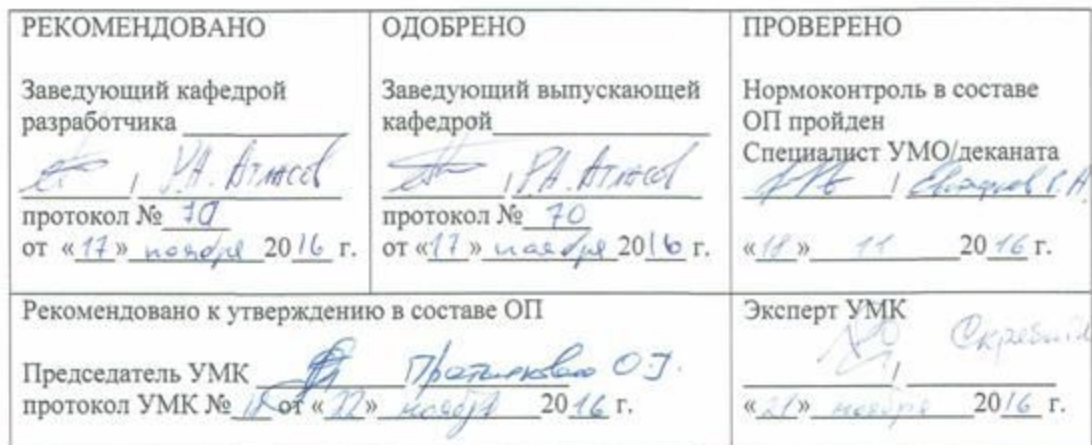 РЕКОМЕНДОВАНО
Заведующий кафедрой
разработчика
Р.А. Атласов
протокол № 70
от «17» ноября 2016 г.
ОДОБРЕНО
Заведующий выпускающей
кафедрой
Р.А. Атласов
протокол № 70
от «17» ноября 2016 г.
ПРОВЕРЕНО
Нормоконтроль в составе
ОП пройден
Специалист УМО/деканата
«18» 11 2016 г.
Рекомендовано к утверждению в составе ОП
Председатель УМК
протокол УМК № от «22» ноября 2016 г.
Эксперт УМК
«21» ноября 2016 г.